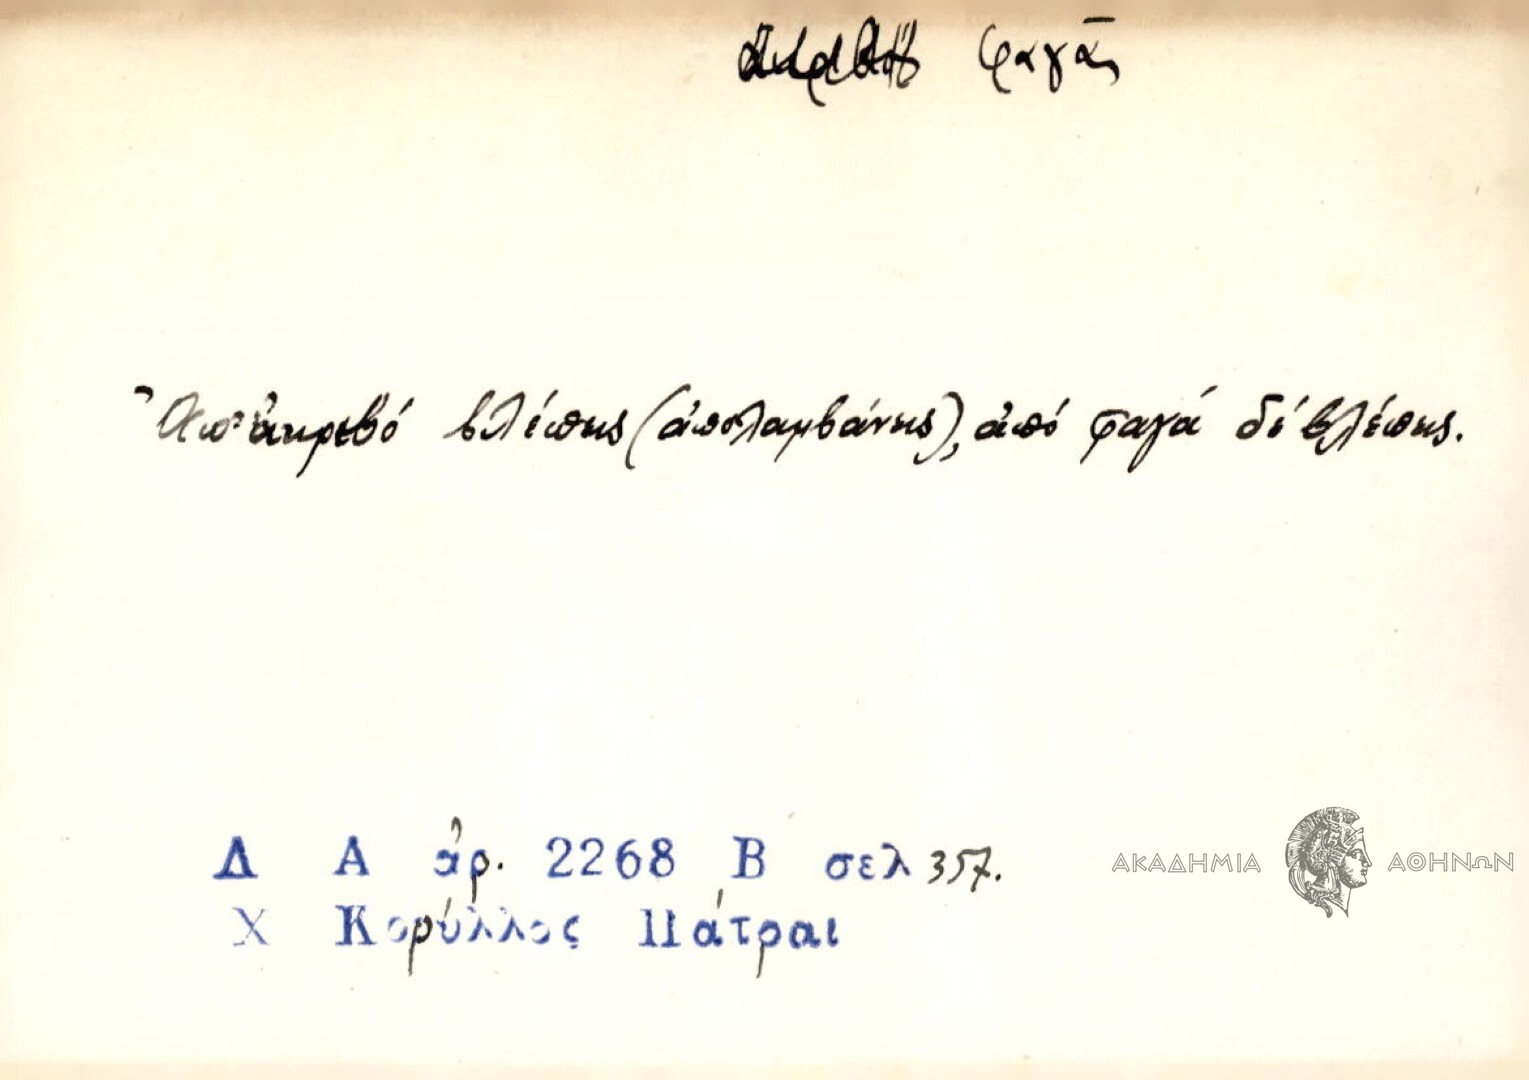 φαγᾶς
Ἀπ' ἀκριβό βλέπης (ἀπολαμβάνης), ἀπό φαγά δέ βλέπης.
Δ Α ἀρ. 2268 Β σελ 357.
Χ Κορύλλος Πάτραι
ΑΚΑΔΗΜΙΑ ΑΘΗΝΩΝ